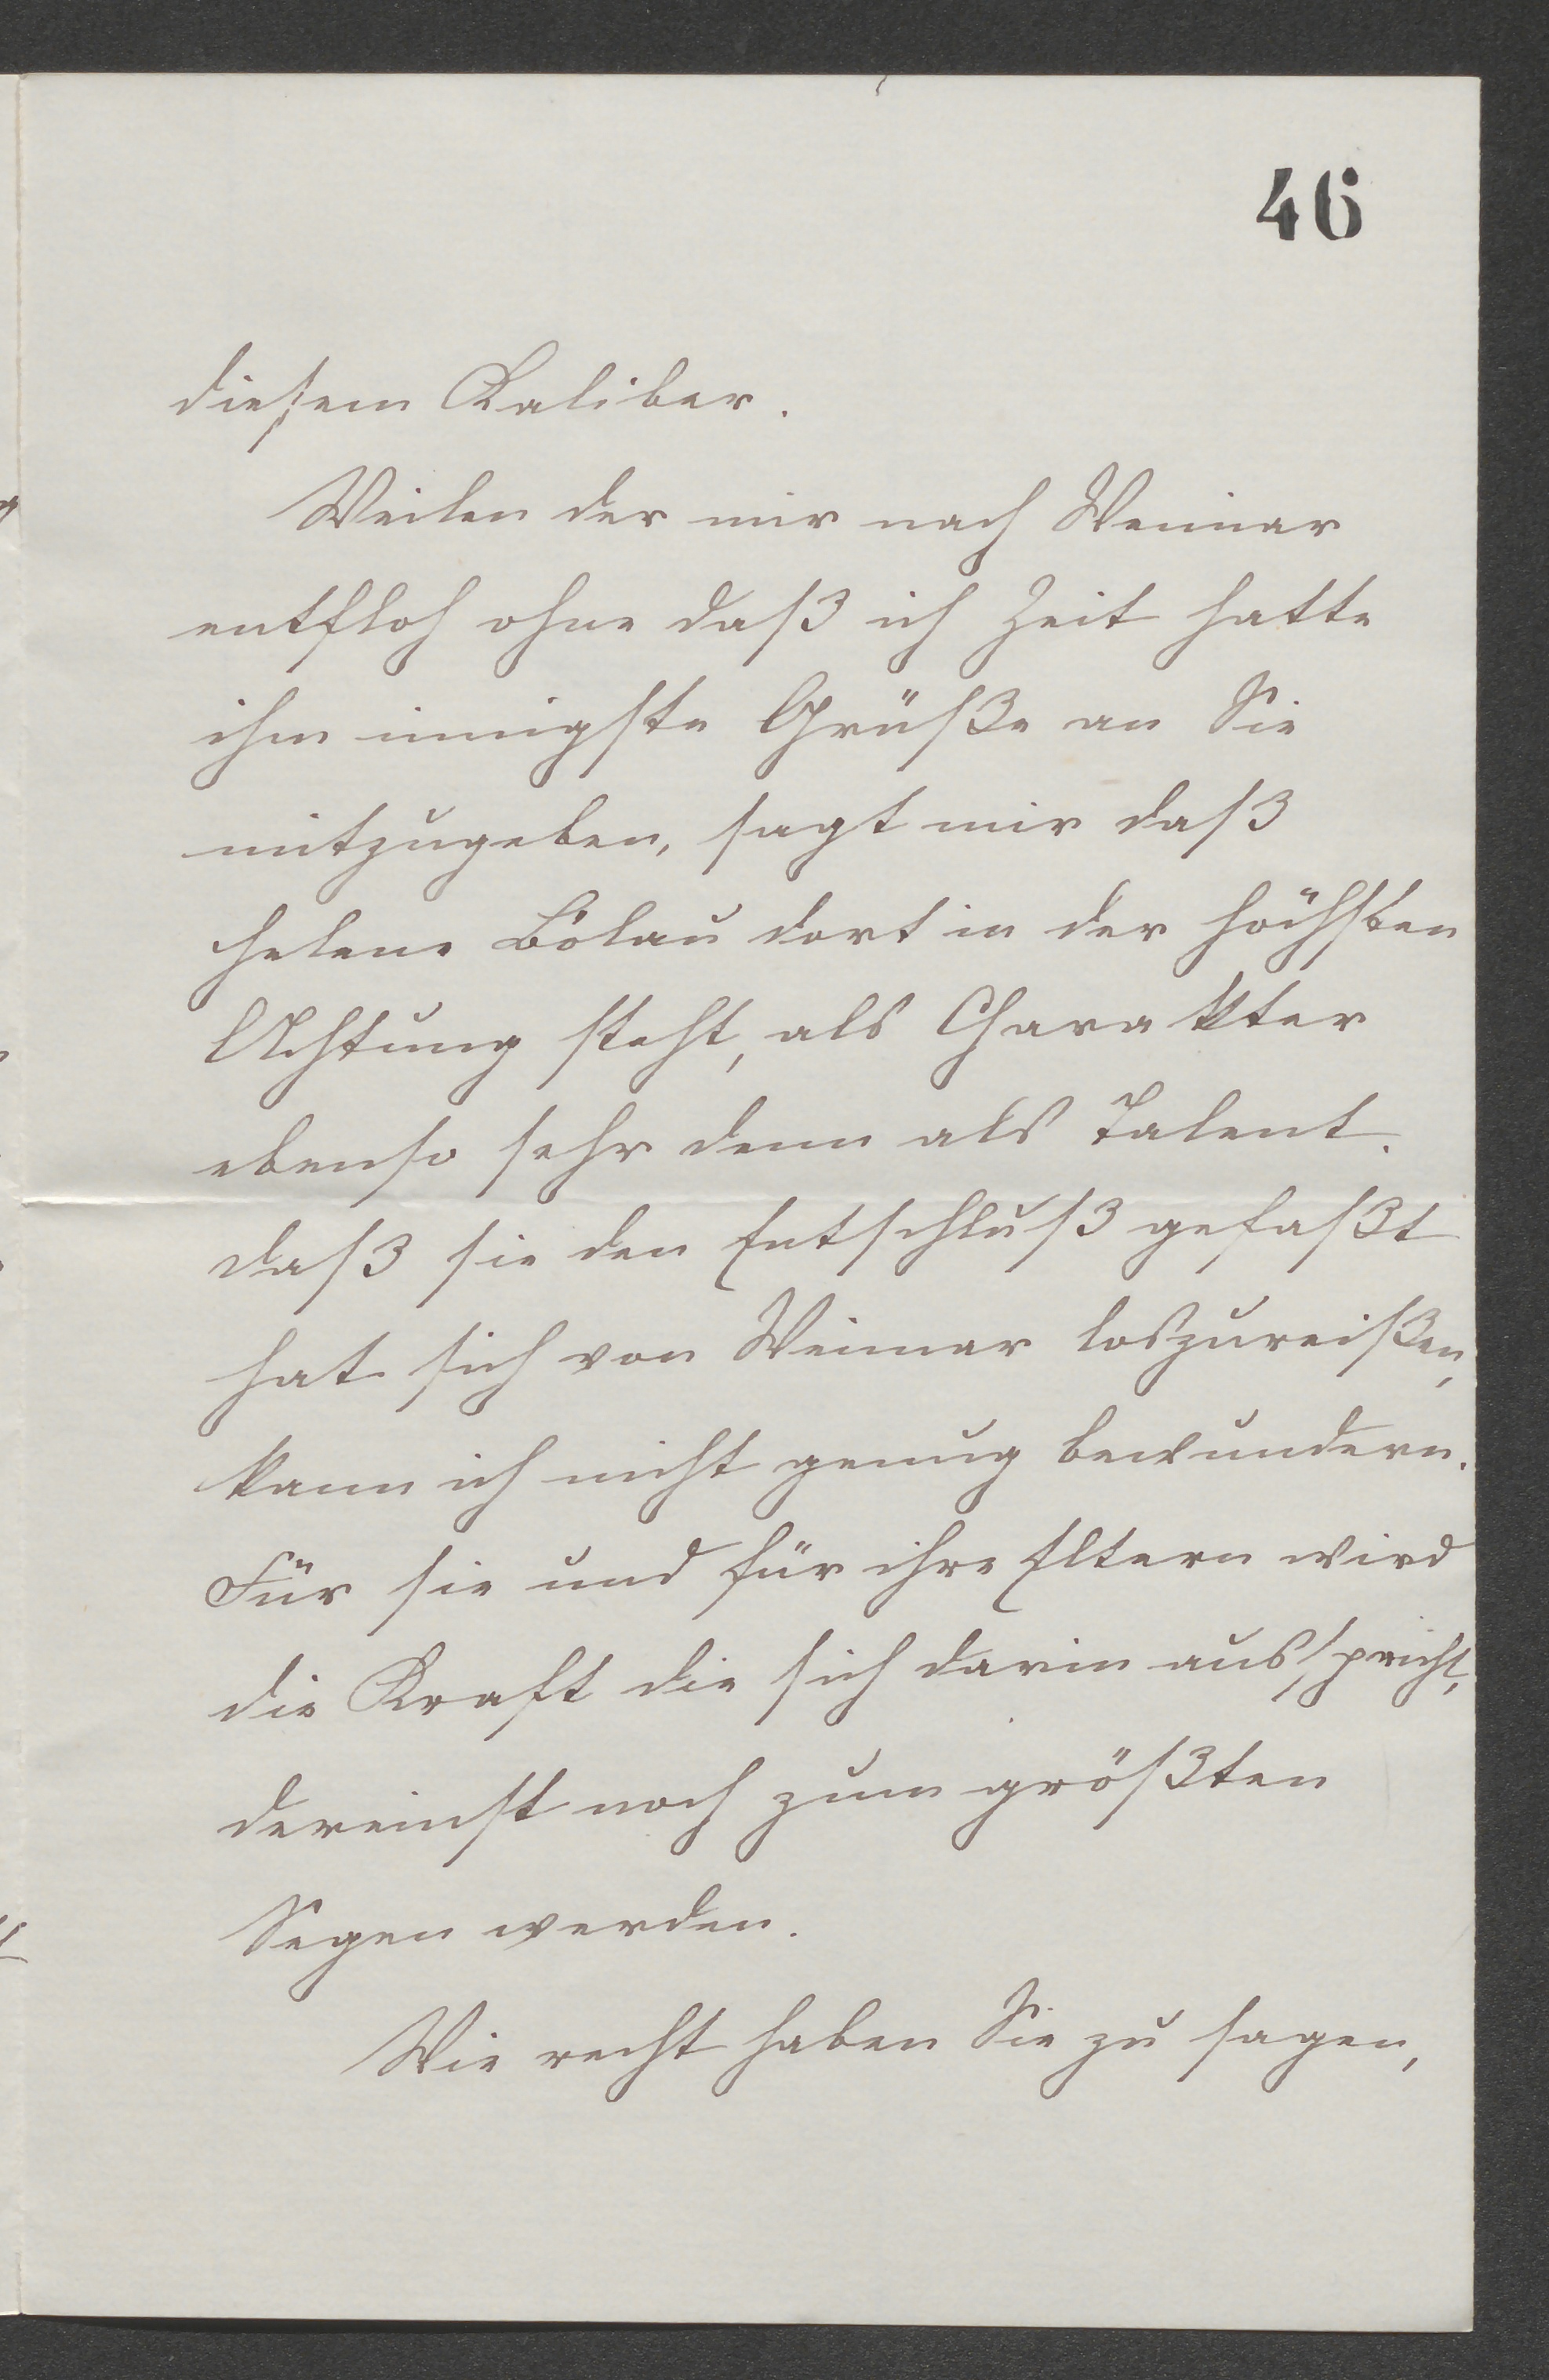 46
diesem Kaliber.
Weilen der mir nach Weimar
entfloh ohne daß ich Zeit hatte
ihm innigste Grüße an Sie
mitzugeben, sagt mir daß
Helene Bölau dort in der höchsten
Achtung steht, als Charakter
ebenso sehr denn als Talent.
Daß sie den Entschluß gefaßt
hat sich von Weimar loszureißen,
kann ich nicht genug bewundern.
Für sie und für ihre Eltern wird
die Kraft die sich darin ausspricht,
dereinst noch zum größten
Segen werden.
Wie recht haben Sie zu sagen,